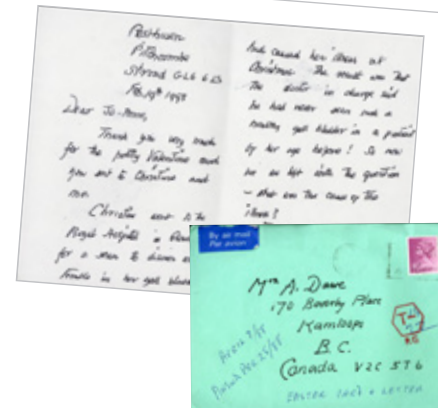 Pitchcombe
Stroud GL6 6
Feb 19th 1988
Dear Jo-Anne,
Thank you very much
for the pretty Valentine card
you sent to Christine and
me.
Christine went to the
Royal Hospital in
for a scan to discover
trouble in her gall bladder
had caused her illness at
Christmas. The result was that
The doctor in charge said
he had never seen such a
healthy gall bladder in a patient
by her age before! So now
we are left with the question
- what was the cause of the
illness?
By air mail
Par avion
Mrs A. Dawe
170 Beverly Place
Kamloops
B.C.
Canada V2C 5T6
EASTER CARD & LETTER